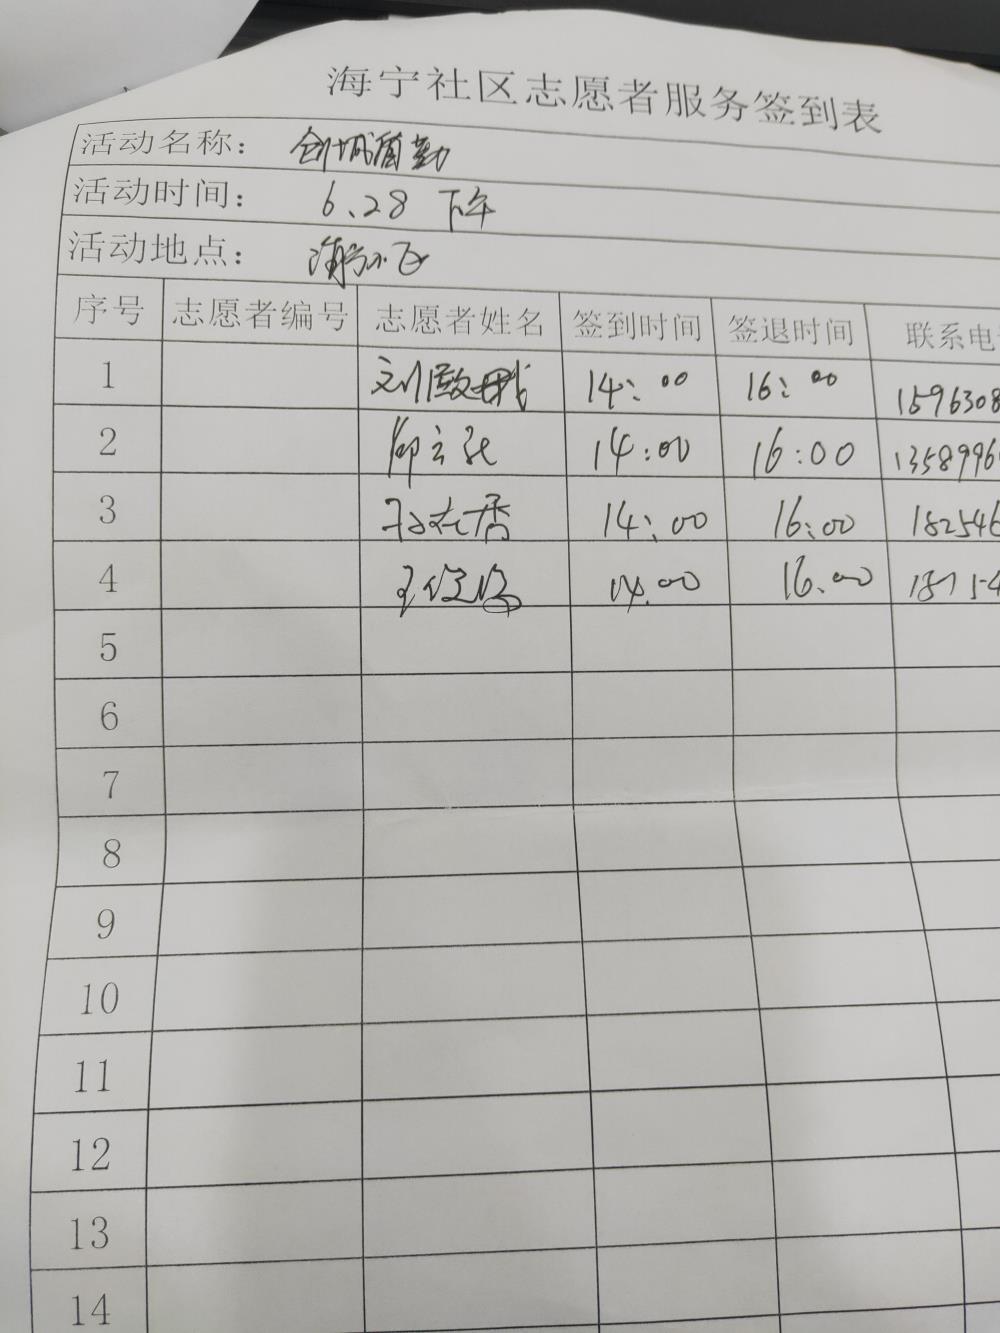 海宁社区志愿者服务签到表
活动名称： 创城值勤
活动时间： 6.28 下午
活动地点： 海宁小区
序号 志愿者编号 志愿者姓名 签到时间 签退时间 联系电
1 14:00 16:00 1596308
2 14:00 16:00 1358996
3 14:00 16:00 182546
4 14.00 16.00
5
6
7
8
9
10
11
12
13
14